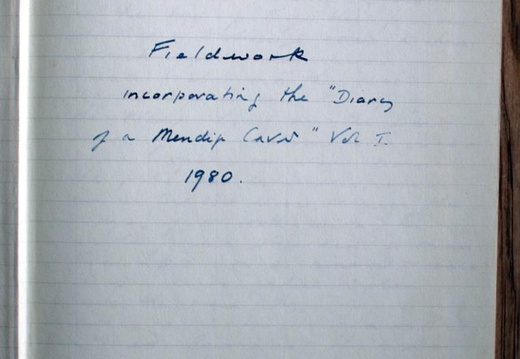 Fieldwork
incorporating the "Diary
of a Mendip Caver" Vol I.
1980.